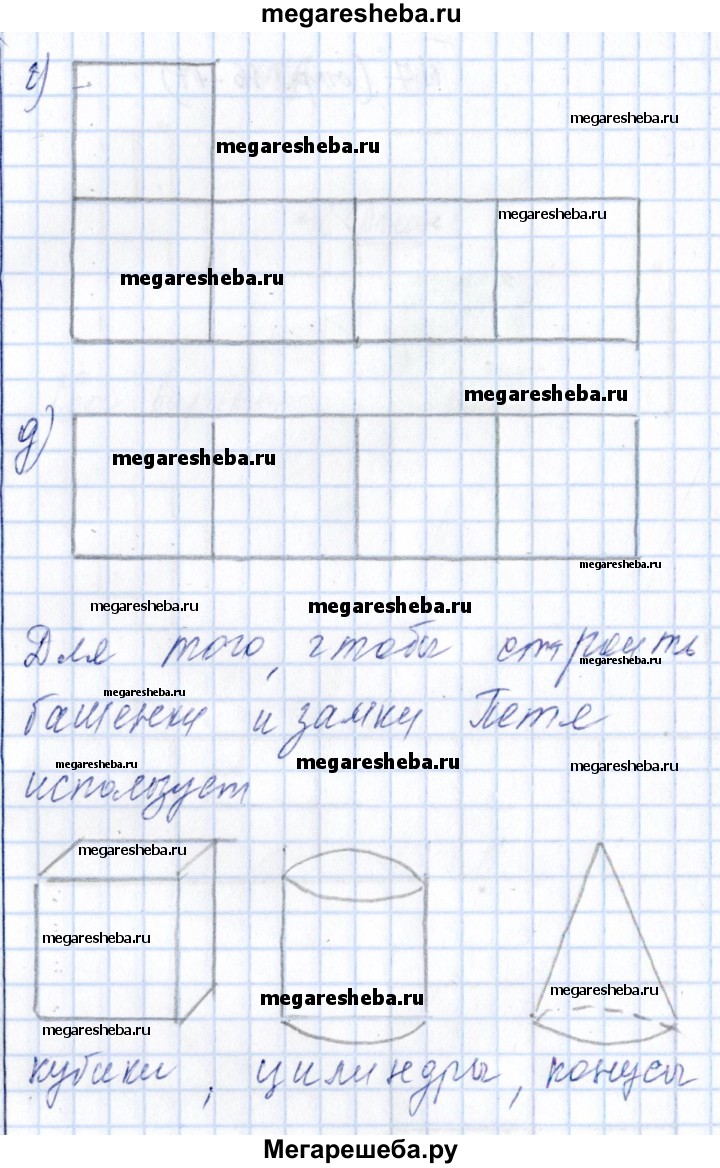 megaresheba.ru
г)
megaresheba.ru
megaresheba.ru
megaresheba.ru
megaresheba.ru
megaresheba.ru
д)
megaresheba.ru
megaresheba.ru
megaresheba.ru
megaresheba.ru
Для того, чтобы строить
megaresheba.ru
megaresheba.ru
башенки и замки Петя
megaresheba.ru
megaresheba.ru
megaresheba.ru
использует
megaresheba.ru
megaresheba.ru
megaresheba.ru
megaresheba.ru
megaresheba.ru
кубики, цилиндры, конусы
Мегарешеба.ру